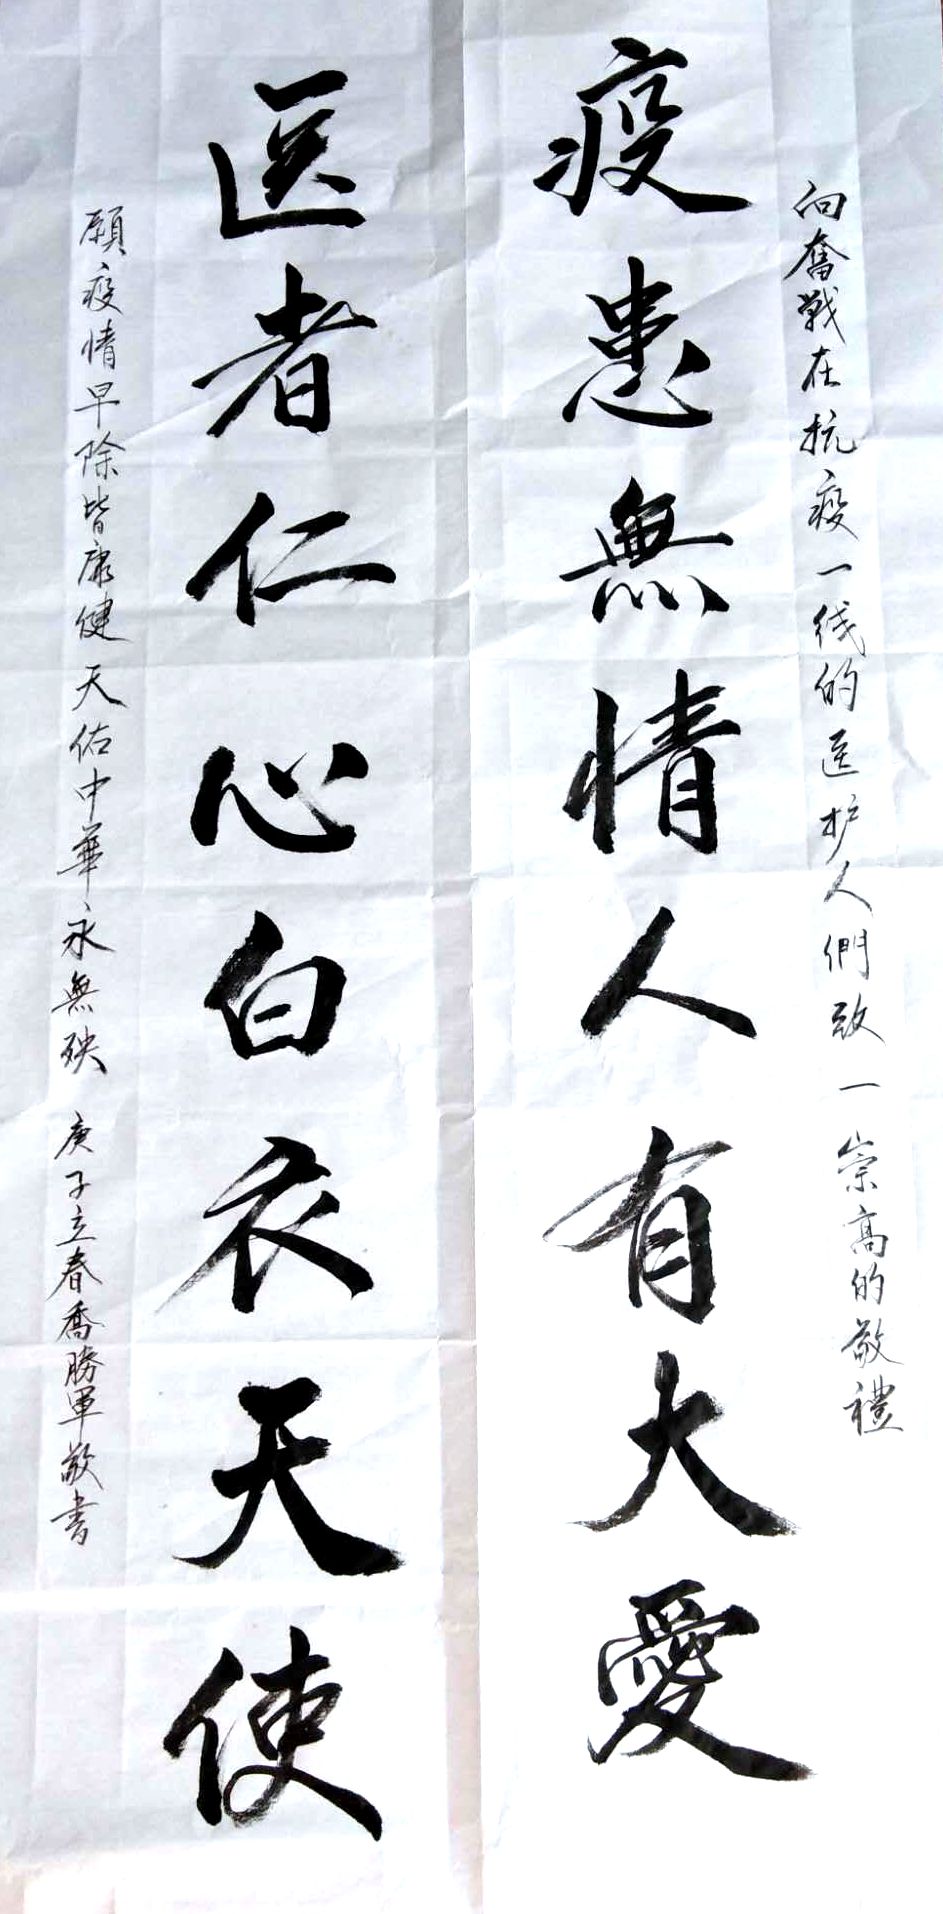 向奮戰在抗疫一线的医护人們致一崇高的敬禮
疫患無情人有大愛
医者仁心白衣天使
願疫情早除皆康健天佑中華永無殃 庚子立春喬勝軍敬書